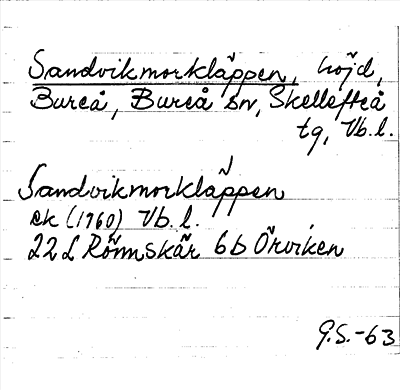 Sandvikmorkläppen, höjd,
Bureå, Bureå sn, Skellefteå
tg, Vb.l.
Sandvikmorkläppen
ek (1960) Vb.l.
22 L Rönnskär 6b Örviken
G.S.-63